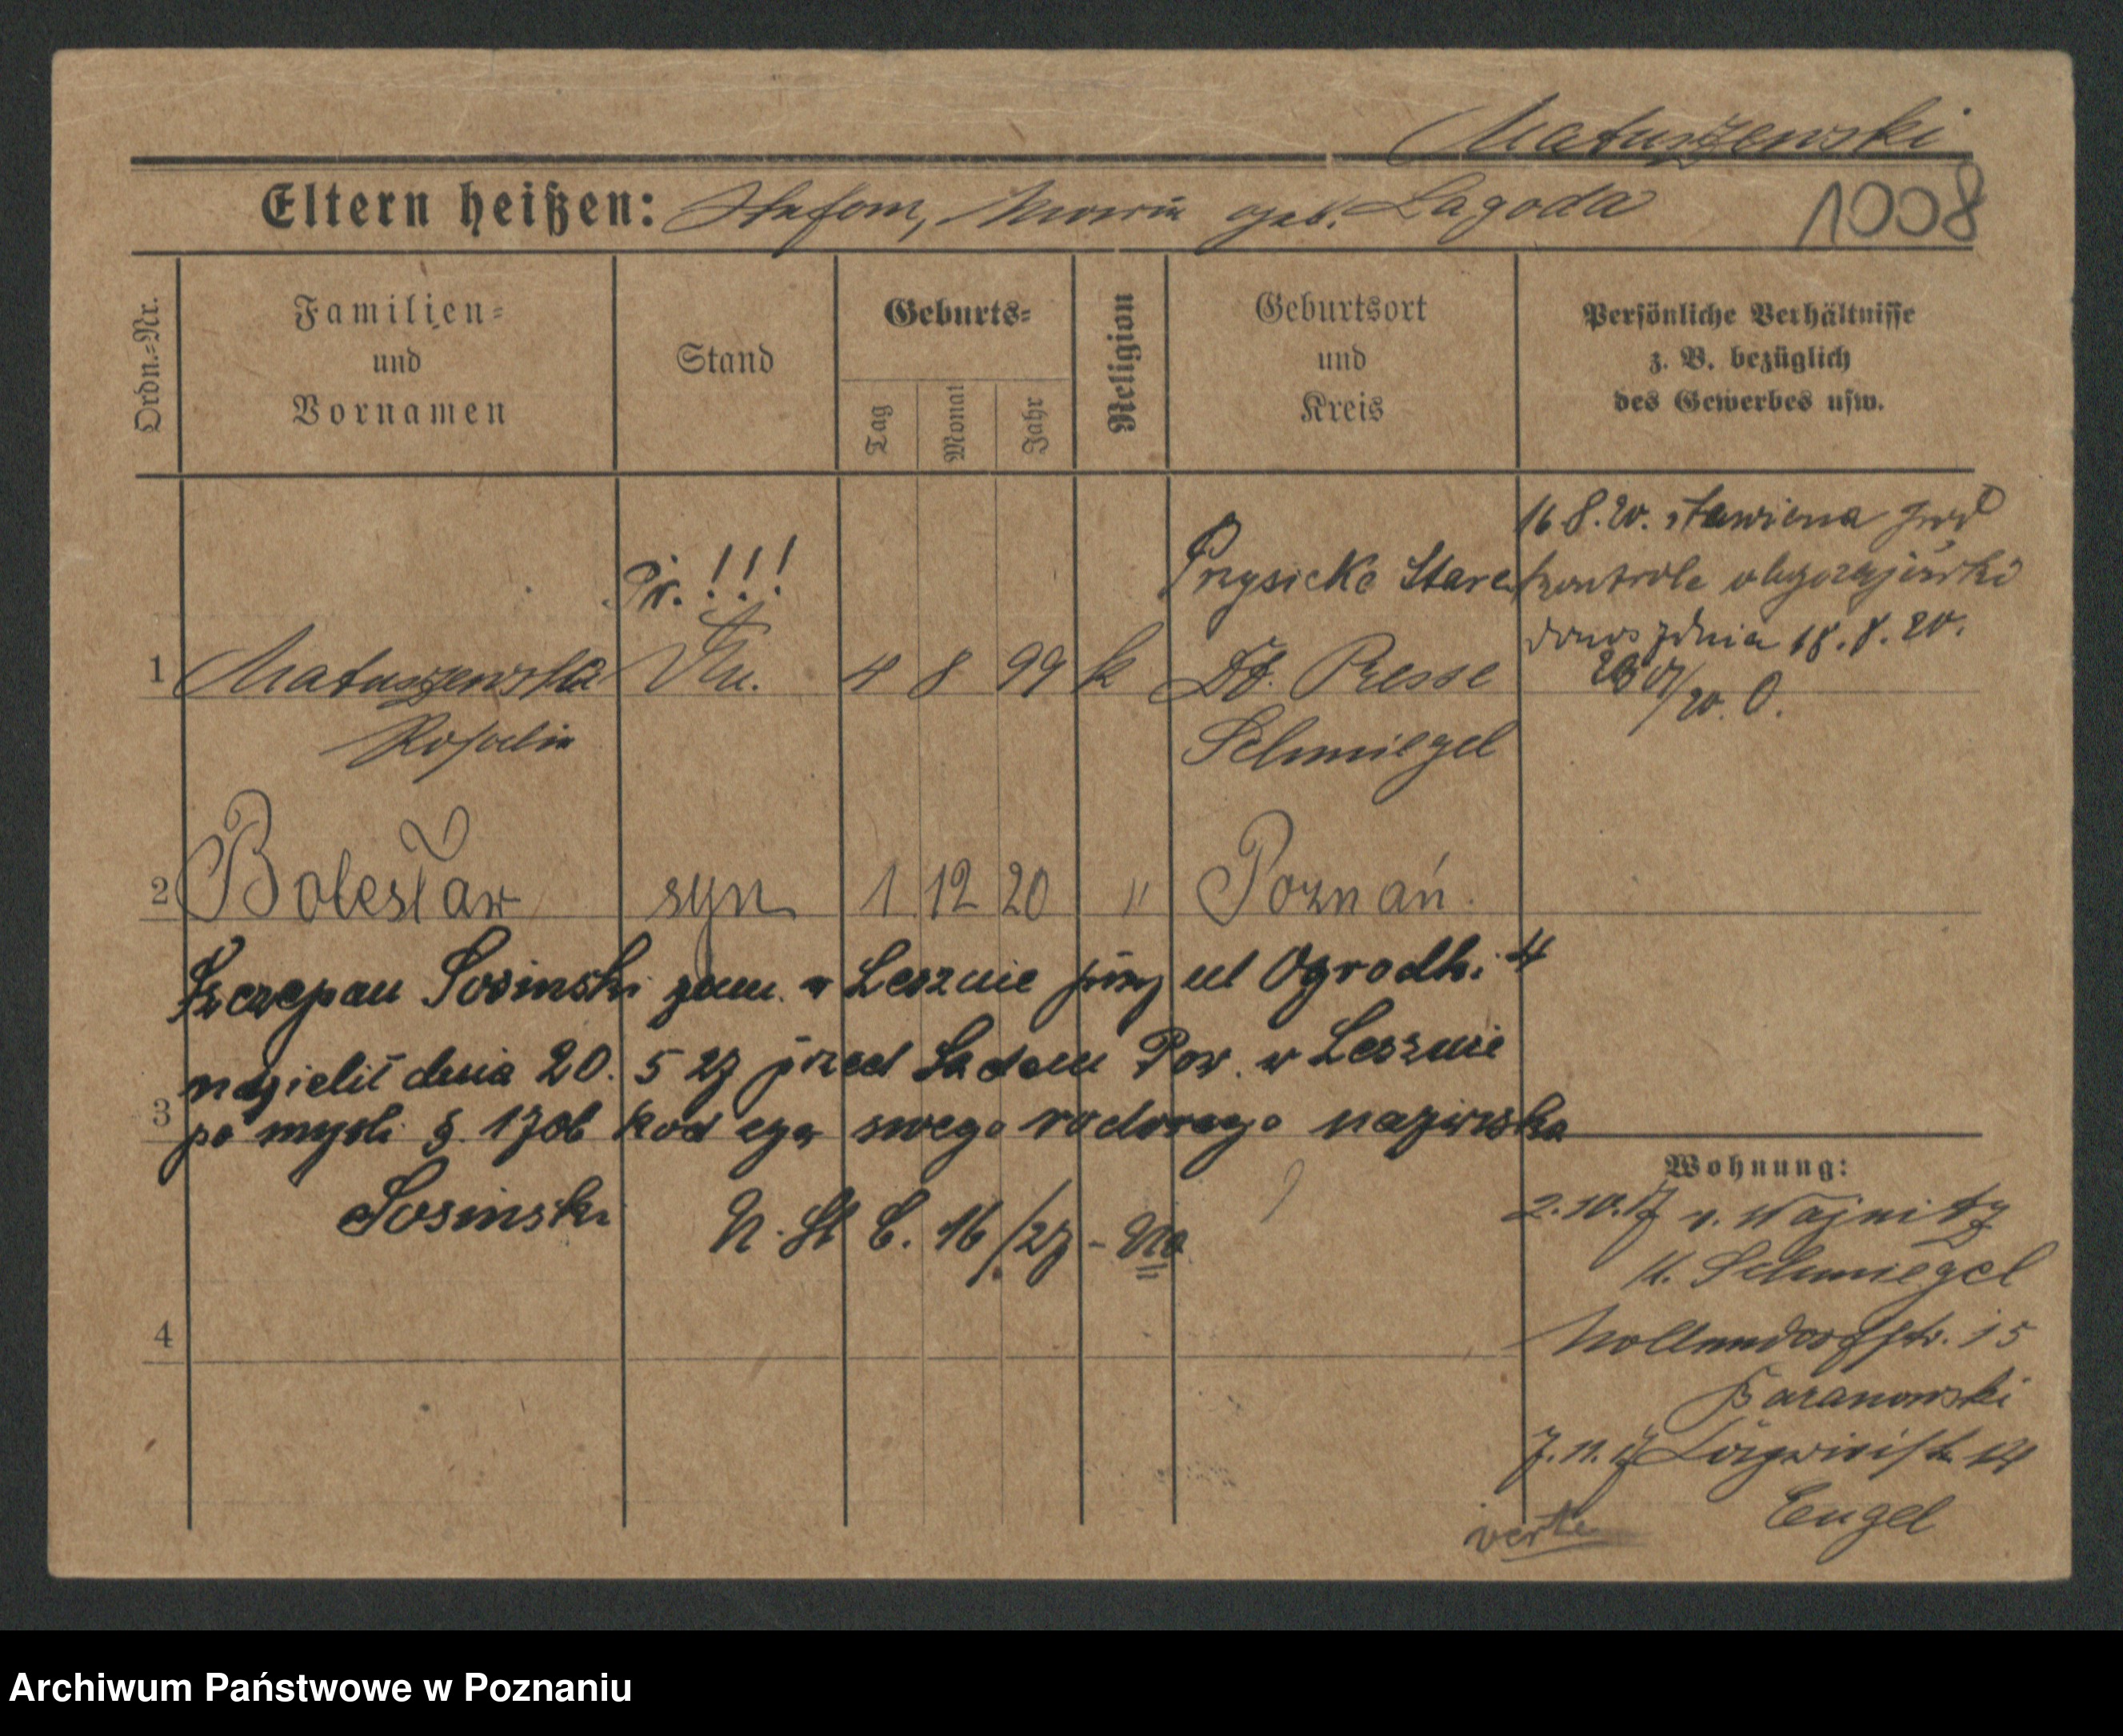 Matuszewski
Eltern heißen: Stefan, Maria geb. Lagoda
1008
Ordn.=Nr.
Familien=
und
Vornamen
Stand
Geburts=
Tag
Monat
Jahr
Religion
Geburtsort
und
Kreis
Persönliche Verhältnisse
z. B. bezüglich
des Gewerbes usw.
16.8.20. stawiona pod
kontrole obyczajówki
18.8.20.
20.
Pr. !!!
Przysieka Stare
1 Matuszewska 4 8 99 k Dt. Presse
Rosalie Schmiegel
2 Bolesław syn 1 12 20 " Poznań.
Szczepan Sosinski zam. w Lesznie przy ul Ogrodk. 4
udzielił dnia 20. 5 27 przed Sadem Pow. w Lesznie
3 po mysli §. 1706 kod swego rodowego nazwiska
Sosinski N. St C. 16/27 -
4
Wohnung:
2.10.17 v. Wojnitz
K. Schmiegel
Nollendorfstr. 15
Baranowski
7.11.17
Engel
verte
Archiwum Państwowe w Poznaniu